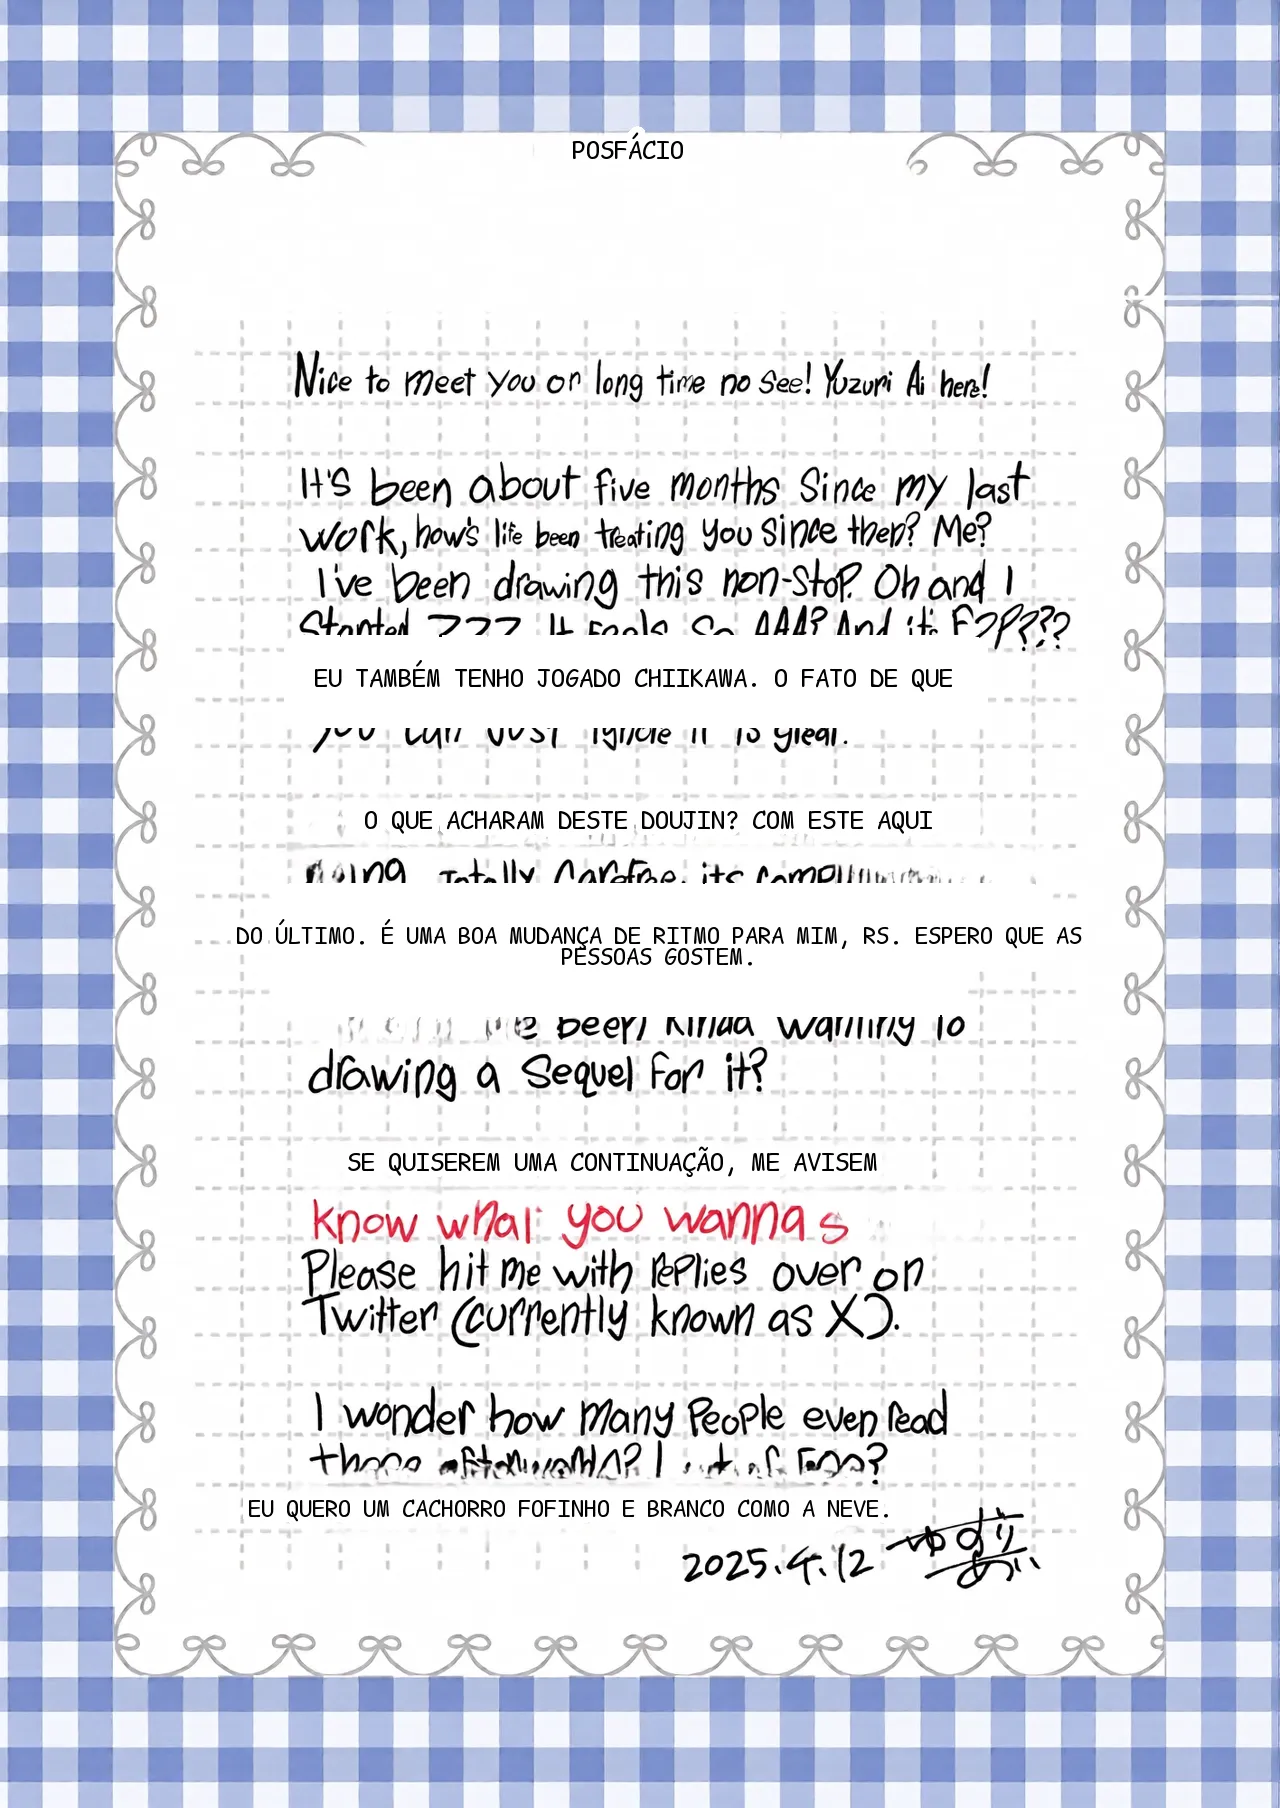 POSFÁCIO
Nice to meet you or long time no see! Yuzuri Ai here!
It's been about five months since my last
work, how's life been treating you since then? Me?
I've been drawing this non-stop. Oh and I
Started ZZZ. It feels so AAA? And it's F2P???
EU TAMBÉM TENHO JOGADO CHIIKAWA. O FATO DE QUE
you can just ignore it is great.
O QUE ACHARAM DESTE DOUJIN? COM ESTE AQUI
being totally carefree, its
DO ÚLTIMO. É UMA BOA MUDANÇA DE RITMO PARA MIM, RS. ESPERO QUE AS
PESSOAS GOSTEM.
been kinda wanting to
drawing a sequel for it?
SE QUISEREM UMA CONTINUAÇÃO, ME AVISEM
know what you wanna s
Please hit me with replies over on
Twitter (currently known as X).
I wonder how many people even read
these afterwords? 1 out of
EU QUERO UM CACHORRO FOFINHO E BRANCO COMO A NEVE.
2025.4.12 ゆずり
あい